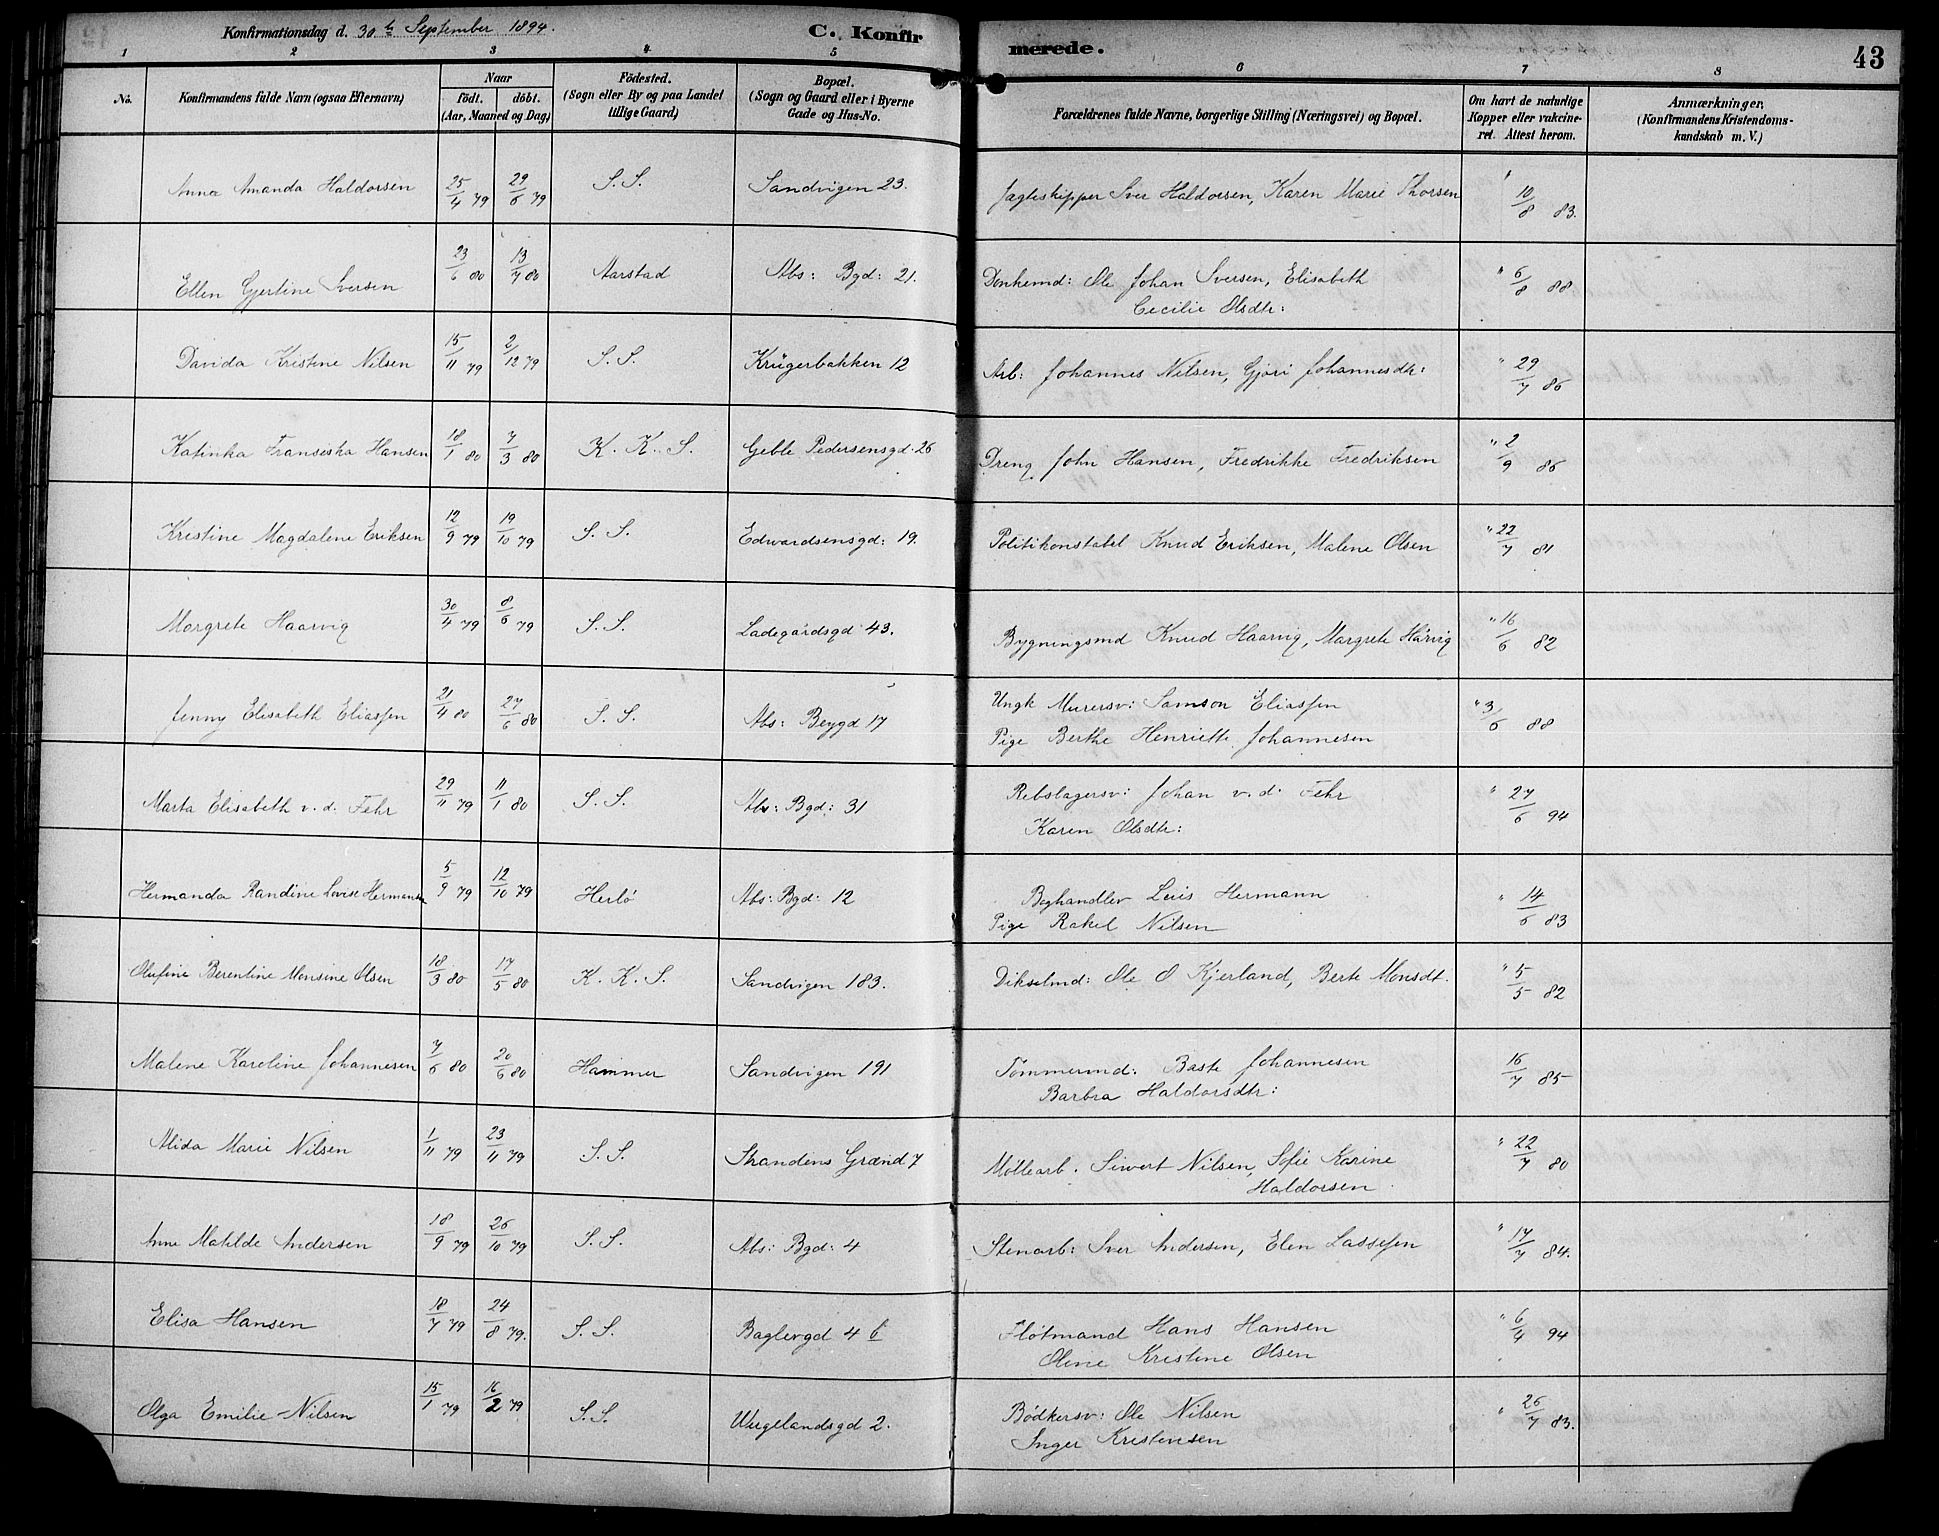 Konfirmationsdag d. 30te September 1894. C. Konfirmerede. 43
1 2 3 4 5 6 7 8
No. Konfirmandens fulde Navn (ogsaa Efternavn) Naar födt. döbt. (Aar, Maaned og Dag) Födested. (Sogn eller By og paa Landet tillige Gaard) Bopæl. (Sogn og Gaard eller i Byerne Gade og Hus-No. Forældrenes fulde Navne, borgerlige Stilling (Næringsvei) og Bopæl. Om havt de naturlige Kopper eller vakcineret. Attest herom. Anmærkninger. (Konfirmandens Kristendomskundskab m. V.)
Anna Amanda Haldorsen 25/4 79 29/6 79 S. S. Sandvigen 23. Jagteskipper Sver Haldorsen, Karen Marie Thorsen " 10/8 83.
Ellen Gjertine Sversen 23/6 80 13/7 80 Aarstad Abs: Bgd: 21. Donkemd: Ole Johan Sversen, Elisabeth " 6/8 88
Cecilie Olsdtr:
Davida Kristine Nilsen 15/11 79 2/12 79 S. S. Krügerbakken 12 Arb: Johannes Nilsen, Gjøri Johannesdtr: " 29/7 86
Katinka Fransiska Hansen 18/1 80 7/3 80 K. K. S. Geble Pedersensgd. 26 Dreng John Hansen, Fredrikke Fredriksen " 2/9 86
Kristine Magdalene Eriksen 12/9 79 19/10 79 S. S. Edvardsensgd: 19. Politikonstabel Knud Eriksen, Malene Olsen " 22/7 81
Margrete Haarvig 30/4 79 8/6 79 S. S. Ladegårdsgd 43. Bygningsmd Knud Haarvig, Margrete Hårvig " 16/6 82
Jenny Elisabeth Eliassen 21/4 80 27/6 80 S. S. Abs: Beygd 17 Ungk Murersv: Samson Eliassen " 3/6 88
Pige Berthe Henriette Johannesen
Marta Elisabeth v. d. Fehr 29/11 79 11/1 80 S. S. Abs: Bgd: 31 Rebslagersv: Johan v. d. Fehr " 27/6 94
Karen Olsdtr:
Hermanda Randine Lovise Hermansen 5/9 79 12/10 79 Herlö Abs: Bgd: 12 Beghandler Luis Hermann " 14/6 83
Pige Rakel Nilsen
Olufine Berentine Monsine Olsen 18/3 80 17/5 80 K. K. S. Sandvigen 183. Dikselmd: Ole O Kjerland, Berte Monsdt. " 5/5 82
Malene Karoline Johannesen 7/6 80 20/6 80 Hammer Sandvigen 191 Tömmermd: Baste Johannesen 16/7 85
Barbra Haldorsdtr:
Alida Marie Nilsen 1/11 79 23/11 79 S. S. Strandens Grænd 7 Möllearb. Sivert Nilsen, Sofie Karine " 22/7 80
Haldorsen
Anne Matilde Andersen 18/9 79 26/10 79 S. S. Abs: Bgd: 4 Stenarb: Sver Andersen, Elen Lassesen " 17/7 84.
Elisa Hansen 18/7 79 24/8 79. S. S. Baglergd 4 b Fløtmand Hans Hansen " 6/4 94
Oline Kristine Olsen
Olga Emilie Nilsen 15/1 79 16/2 79 S. S. Wergelandsgd 2. Bödkersv: Ole Nilsen " 26/7 83.
Inger Kristensen